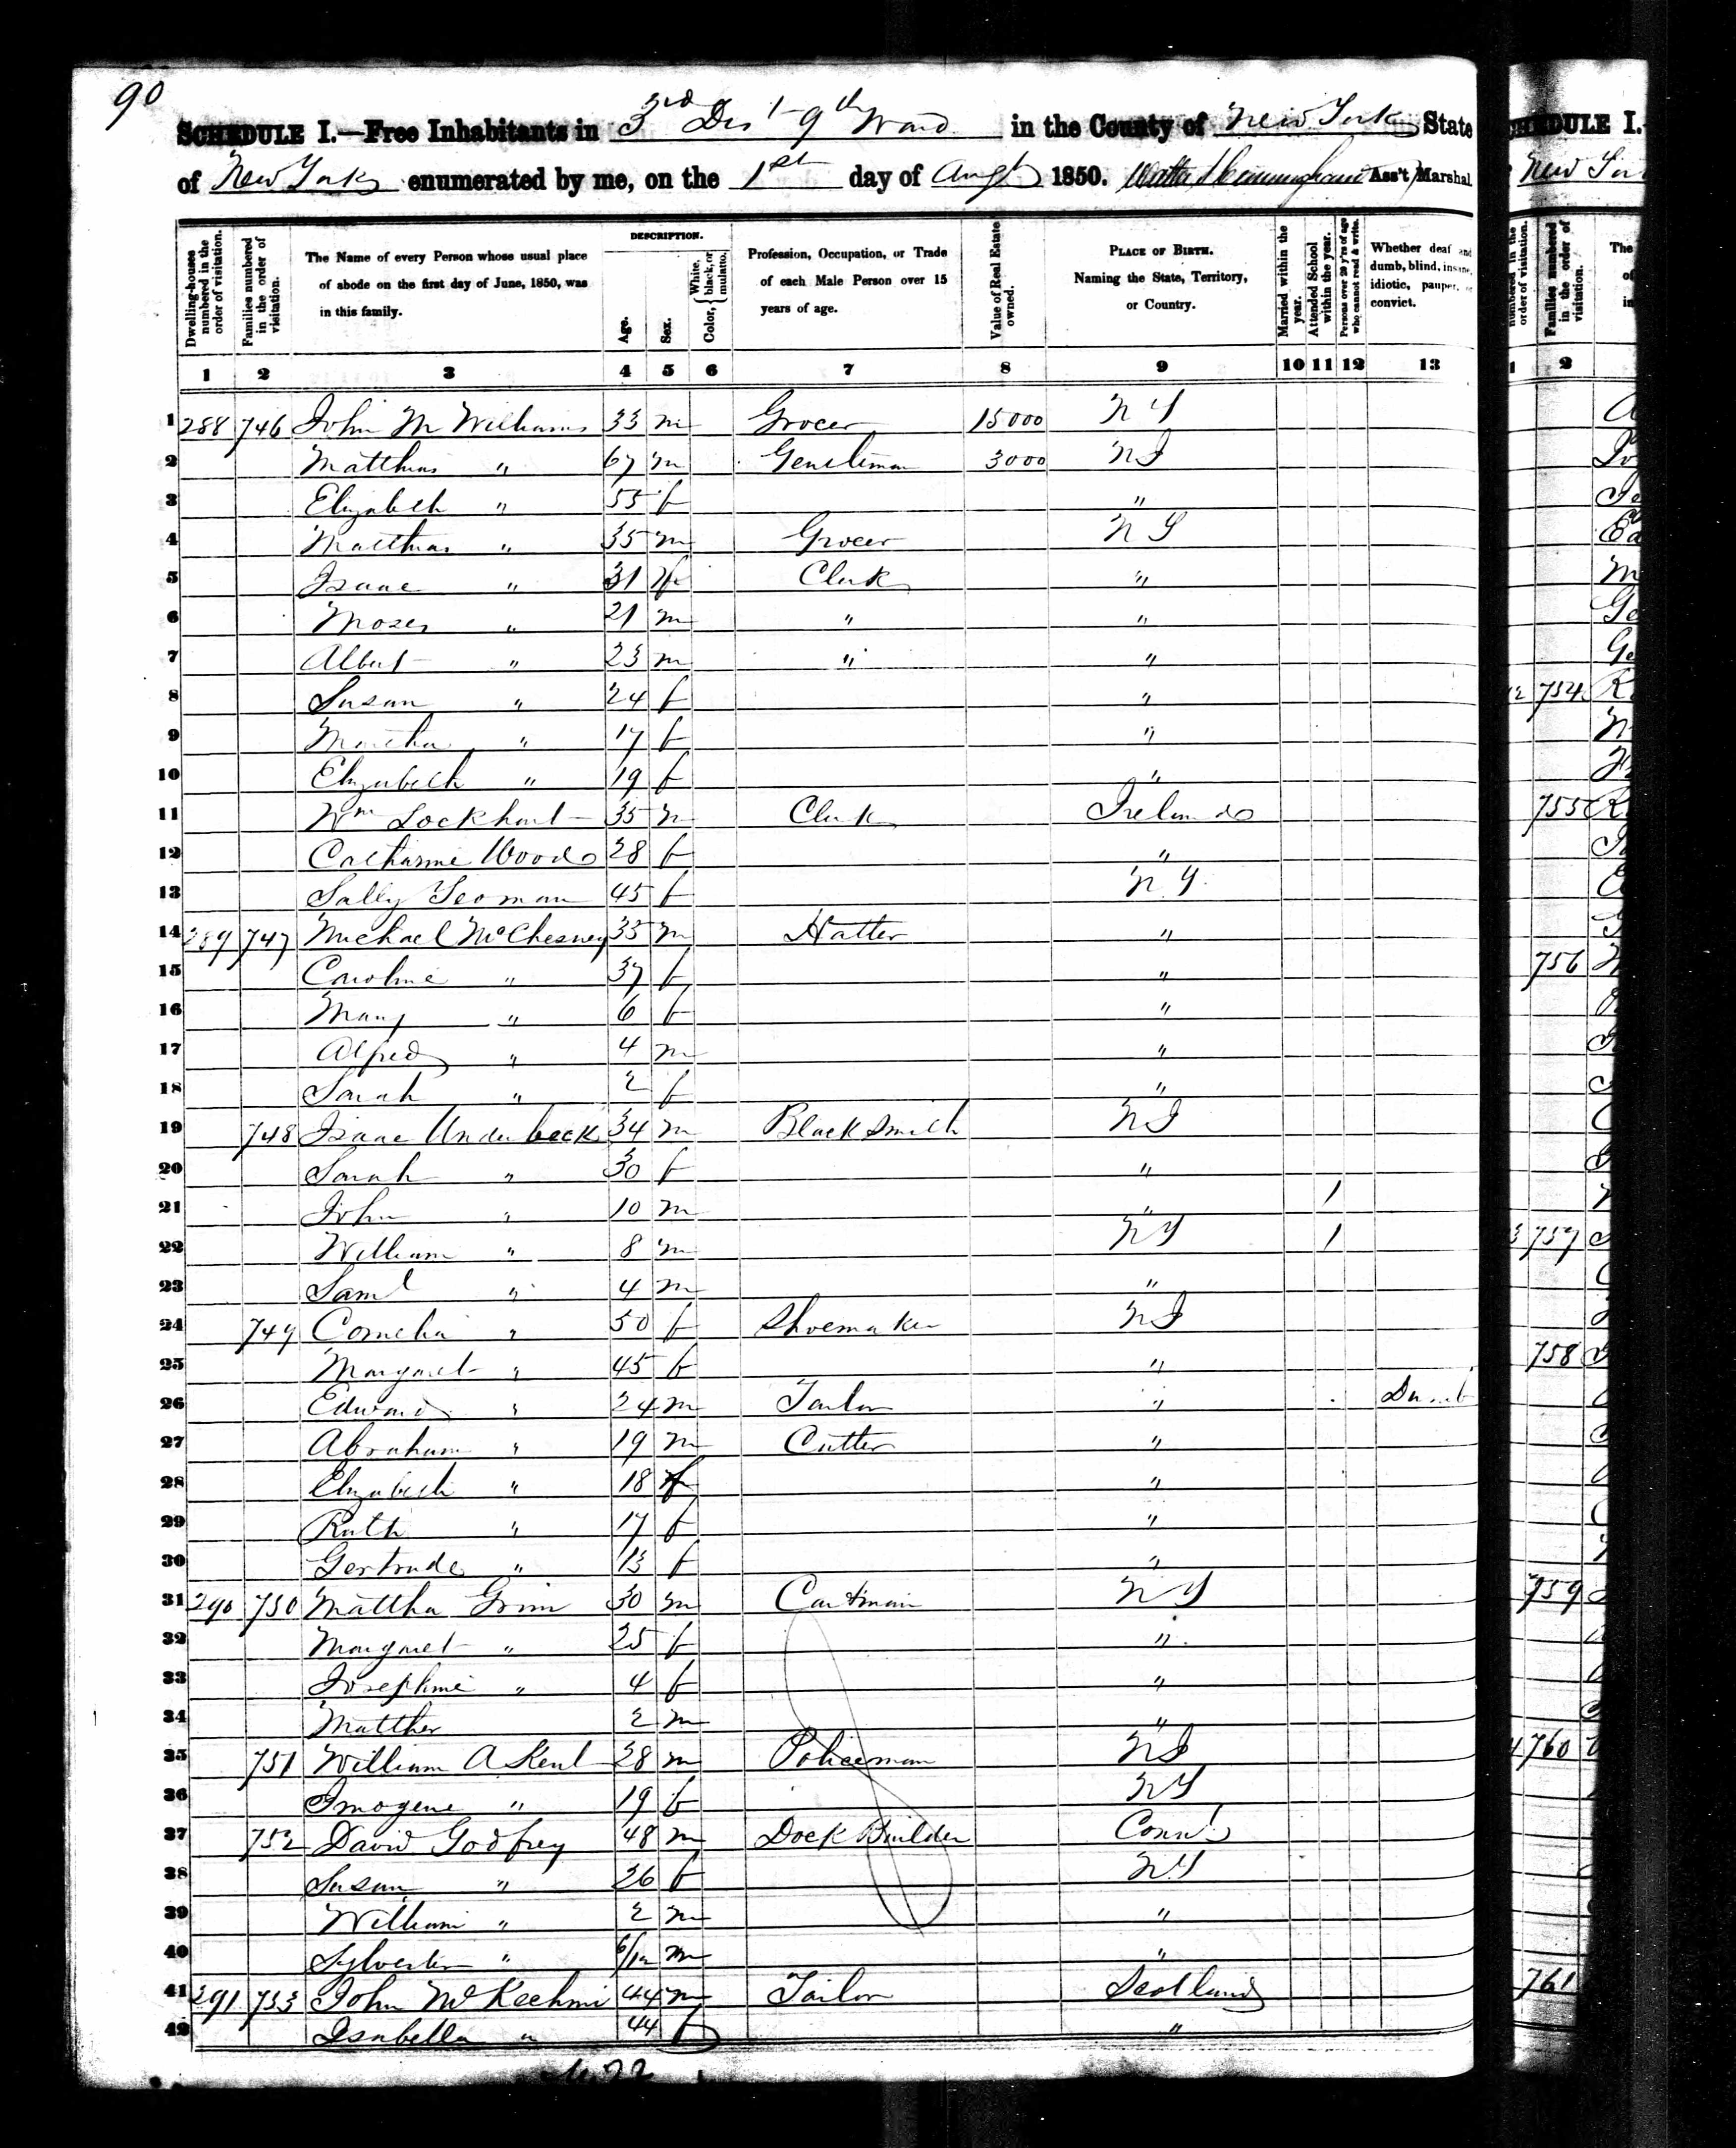 90
SCHEDULE I.—Free Inhabitants in 3rd Dist 9th Ward in the County of New York State
of New York enumerated by me, on the 1st day of Augt 1850. Ass't Marshal
Dwelling-houses numbered in the order of visitation.
Families numbered in the order of visitation.
The Name of every Person whose usual place of abode on the first day of June, 1850, was in this family.
DESCRIPTION.
Age.
Sex.
Color, { White, black, or mulatto.
Profession, Occupation, or Trade of each Male Person over 15 years of age.
Value of Real Estate owned.
PLACE OF BIRTH. Naming the State, Territory, or Country.
Married within the year.
Attended School within the year.
Persons over 20 y'rs of age who cannot read & write.
Whether deaf and dumb, blind, insane, idiotic, pauper, or convict.
1 2 3 4 5 6 7 8 9 10 11 12 13
1 288 746 John M Williams 33 m Grocer 15000 N Y
2 Matthias " 67 m Gentleman 3000 N J
3 Elizabeth " 55 f "
4 Matthias " 35 m Grocer N Y
5 Isaac " 31 Clerk "
6 Moses " 21 m " "
7 Albert " 23 m " "
8 Susan " 24 f "
9 Martha " 17 f "
10 Elizabeth " 19 f "
11 Wm Lockhart 35 m Clerk Ireland
12 Catharine Woods 28 f "
13 Sally Yeoman 45 f N Y
14 289 747 Michael McChesney 35 m Hatter "
15 Caroline " 37 f "
16 Mary " 6 f "
17 Alfred " 4 m "
18 Sarah " 2 f "
19 748 Isaac Underbeck 34 m Black Smith N J
20 Sarah " 30 f "
21 John " 10 m " 1
22 William " 8 m N Y 1
23 Saml " 4 m "
24 749 Cornelia " 50 f Shoemaker N J
25 Margaret " 45 f "
26 Edward " 24 m Tailor " Dumb
27 Abraham " 19 m Cutter "
28 Elizabeth " 18 f "
29 Ruth " 17 f "
30 Gertrude " 13 f "
31 290 750 Matthew Grim 30 m Cartman N Y
32 Margaret " 25 f "
33 Josephine " 4 f "
34 Matthew 2 m "
35 751 William A Kent 28 m Policeman N J
36 Imogene " 19 f N Y
37 752 David Godfrey 48 m Dock Builder Conn
38 Susan " 26 f N Y
39 William " 2 m "
40 Sylvester " 6/12 m "
41 291 753 John McKechnie 44 m Tailor Scotland
42 Isabella " 44 f "
SCHEDULE I.
New
754
755
756
757
758
759
760
761